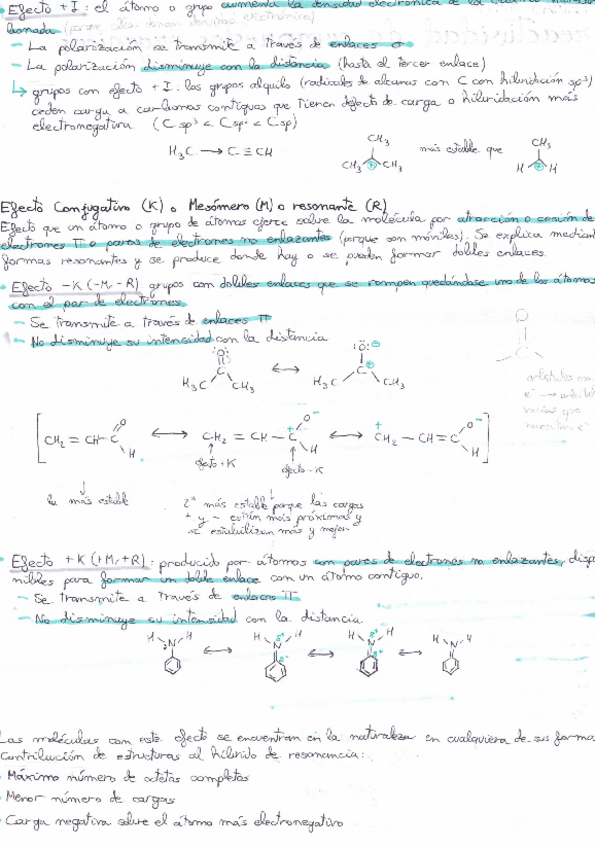 Efecto +I: el átomo o grupo aumenta la densidad electrónica de la
bonada
- La polarización se transmite a través de enlaces σ
- La polarización disminuye con la distancia (hasta el tercer enlace)
↳ grupos con efecto +I: los grupos alquilo (radicales de alcanos con C con hibridación sp³)
ceden carga a carbonos contiguos que tienen defecto de carga o hibridación más
electronegativa. (C sp³ < C sp² < C sp)
H₃C → C ≡ CH
CH₃
CH₃ ⊕ CH₃
más estable que
CH₃
H ⊕ H
Efecto Conjugativo (K) o Mesómero (M) o resonante (R)
Efecto que un átomo o grupo de átomos ejerce sobre la molécula por atracción o cesión de
electrones π o pares de electrones no enlazantes (porque son móviles). Se explica median
formas resonantes y se produce donde hay o se pueden formar dobles enlaces.
• Efecto -K (-M, -R) grupos con dobles enlaces que se rompen quedándose uno de los átomos
con el par de electrones
- Se transmite a través de enlaces π
- No disminuye su intensidad con la distancia
O
C
H₃C CH₃ ↔ H₃C C ⊕ CH₃ O ⊖
O
C
CH₂ = CH - C O H ↔ CH₂ = CH - C + O - H ↔ + CH₂ - CH = C O - H
efecto +K
efecto -K
↓
la más estable
↓
2ª más estable porque las cargas
+ y - están más próximas y
se estabilizan más y mejor
• Efecto +K (+M, +R): producido por átomos con pares de electrones no enlazantes, disp
nibles para formar un doble enlace con un átomo contiguo.
- Se transmite a través de enlaces π
- No disminuye su intensidad con la distancia
H N H ↔ H N δ+ H δ- ↔ H N δ+ H ↔ H N H
Las moléculas con este efecto se encuentran en la naturaleza en cualquiera de sus formas
Contribución de estructuras al híbrido de resonancia:
• Máximo número de octetos completos
• Menor número de cargas
• Carga negativa sobre el átomo más electronegativo